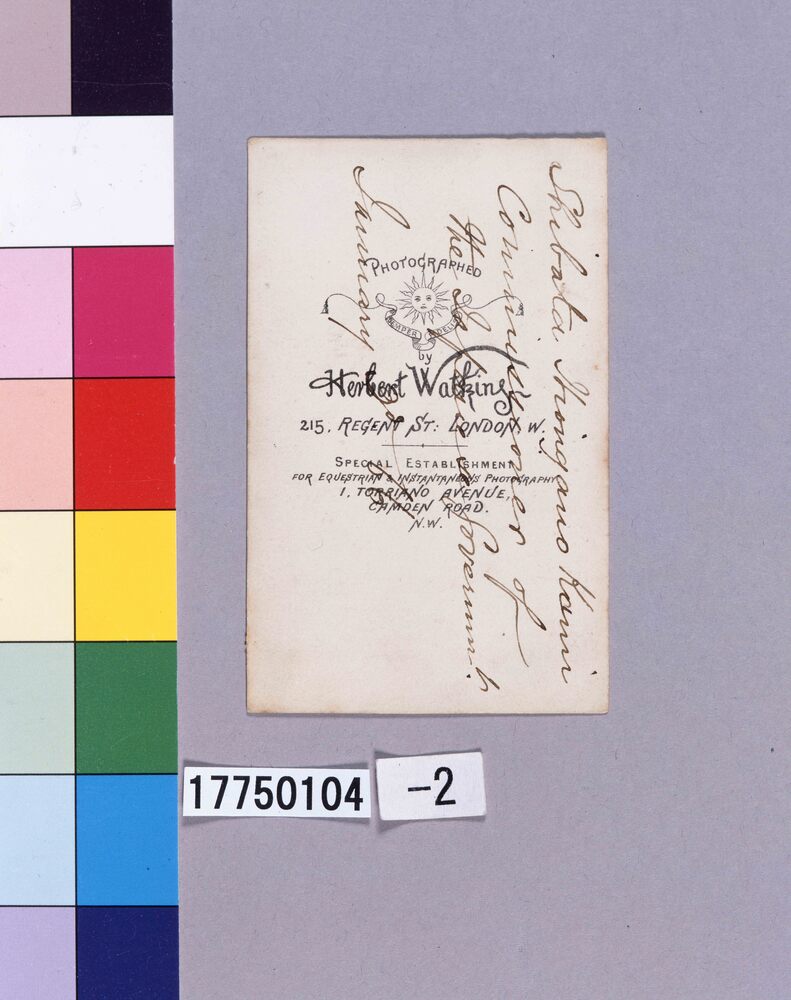 PHOTOGRAPHED
SEMPER FIDELIS
by
Herbert Watkins
215, REGENT ST: LONDON, W.
SPECIAL ESTABLISHMENT
FOR EQUESTRIAN & INSTANTANEOUS PHOTOGRAPHY
1, TORRIANO AVENUE,
CAMDEN ROAD.
N.W.
Shibata Hiugano Kami
Commissioner of
the Japanese Governmt
January
17750104
-2